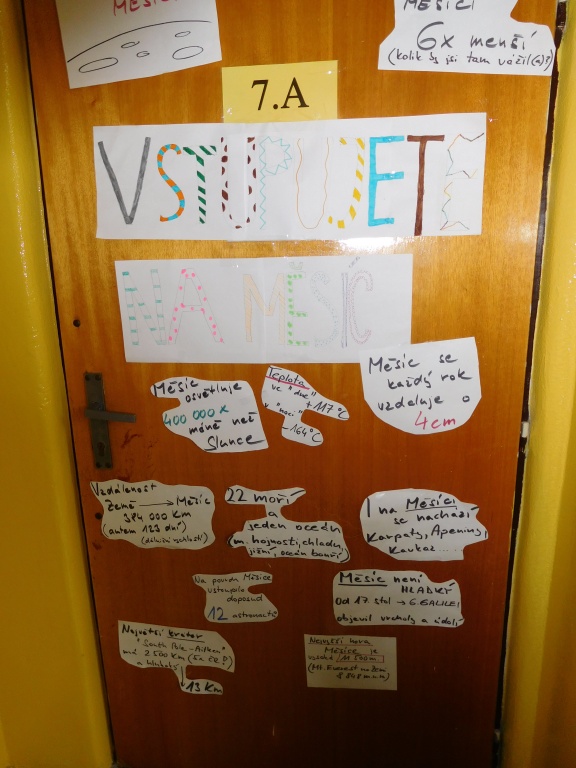 MĚSÍC
MĚSÍCI
6x menší
(kolik by jsi tam vážil(a)?)
7.A
VSTUPUJETE
NA MĚSÍC
Měsíc
osvětluje
400 000 x
méně než
Slunce
Teplota
ve "dne"
+ 117 °C
v "noci"
- 164 °C
Měsíc se
každý rok
vzdaluje o
4cm
Vzdálenost
Země → Měsíc
384 000 km
(autem 123 dní)
22 moří
a
jeden oceán
(m. hojnosti, chladu,
jižní, oceán bouří)
I na Měsíci
se nachází
Karpaty, Apeniny,
Kavkaz.....
Na povrch Měsíce
vstoupilo
doposud
12 astronautů
Měsíc není
HLADKÝ
Od 17. stol → G. GALILEI
objevil vrcholy a údolí
Největší kráter
"South Pole-Aitken"
má 2500 km
a hluboký
13 km
Nejvyšší hora
Měsíce je
vysoká 11 500 m.
(Mt. Everest na Zemi
8 848 m.n.m)